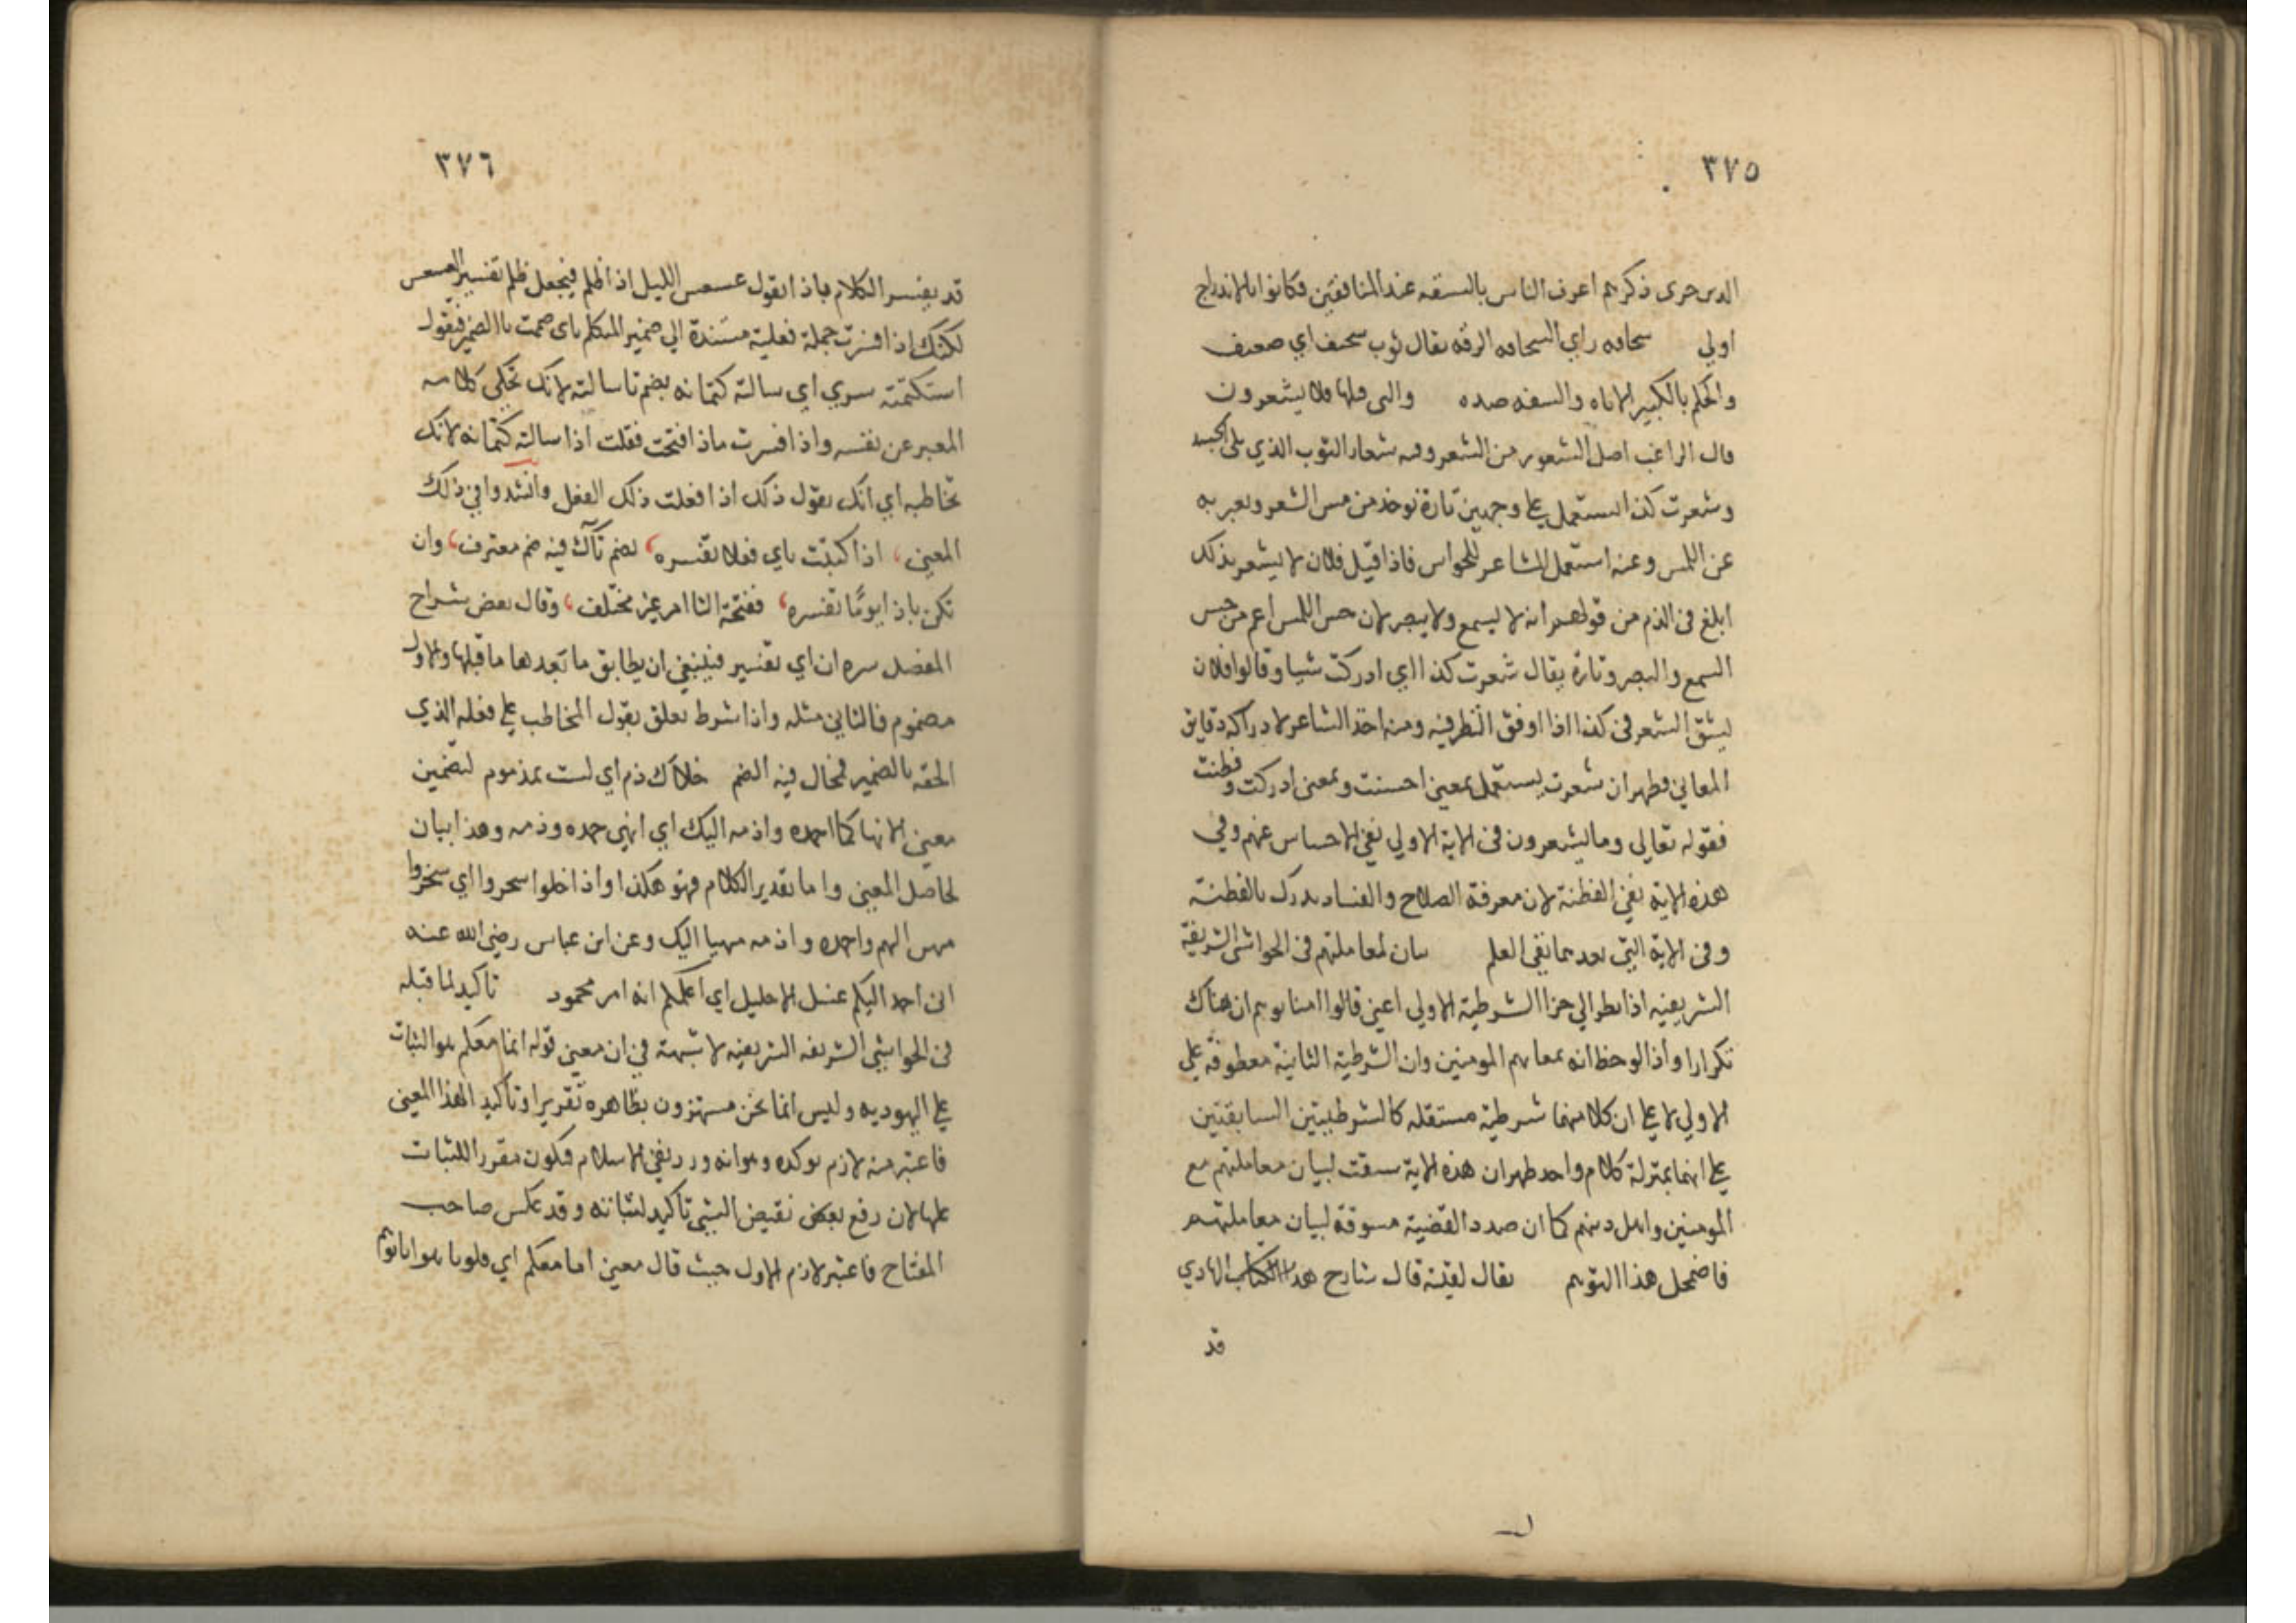 ٣٧٥
الدين جرى ذكرهم اعرف الناس بالسفه عند المنافقين فكانوا بالاندراج
اولي سخافه راي السخافه الرقه يقال ثوب سخيف اي ضعيف
والحلم بالكسر الاناه والسفه ضده والتي قبلها فلا يشعرون
قال الراغب اصل الشعور من الشعر ومنه شعار الثوب الذي يلى الجسد
وشعرت كذا استعمل على وجهين تارة توخذ من مس الشعر ويعبر به
عن اللمس وعنه استعمل المشاعر للحواس فاذا قيل فلان لا يشعر بذلك
ابلغ فى الذم من قولهم انه لا يسمع ولا يبصر لان حس اللمس اعم من حس
السمع والبصر وتارة يقال شعرت كذا اي ادركت شيا وقالوا فلان
يشق الشعر فى كذا اذا اوفق النظر فيه ومنه اخذ الشاعر لادراكه دقايق
المعاني فظهر ان شعرت يستعمل بمعنى احسنت وبمعنى ادركت وفطنت
فقوله تعالى وما يشعرون فى الاية الاولي نفي الاحساس عنهم وفي
هذه الاية نفي الفطنة لان معرفة الصلاح والفساد يدرك بالفطنة
وفى الاية التي بعدهما نفى العلم بيان لمعاملتهم فى الحواشى الشريفة
الشريفيه اذا نظر الي جزا الشرطية الاولي اعني قالوا امنا توهم ان هناك
تكرارا واذا لوحظ انه بمعا هم المومنين وان الشرطية الثانية معطوفة علي
الاولي لا على ان كلا منهما شرطية مستقله كالشرطيتين السابقتين
على انهما بمنزلة كلام واحد ظهر ان هذه الاية سيقت لبيان معاملتهم مع
المومنين واهل دينهم كما ان صدد القضية مسوقة لبيان معاملتهم
فاضمحل هذا التوهم يقال لقيته قال شارح هذا الكتاب الهادي
قد
٣٧٦
قد يفسر الكلام باذا تقول عسعس الليل اذا اظلم فيجعل ظلم تفسير العسعس
لكنك اذا فسرت جملة فعلية مسندة الي ضمير المتكلم باى ضمت تا الضمير فتقول
استكتمته سري اي سالته كتمانه بضم تا سالته لانك تحكى كلامه
المعبر عن نفسه واذا فسرت باذا فتحت فقلت اذا سالته كتمانه لانك
تخاطبه اي انك تقول ذلك اذا فعلت ذلك الفعل وانشدوا في ذلك
المعنى اذا كنيت باي فعلا تفسره بضم تآك فيه ضم معترف وان
تكن باذا يومًا تفسره ففتحة التا امر غير مختلف وقال بعض شراح
المفصل سره ان اي تفسير فينبغي ان يطابق ما بعدها ما قبلها والاول
مضموم فالثاني مثله واذا شرط تعلق بقول المخاطب على فعله الذي
الحقه بالضمير فحال فيه الضم خلاك ذم اي لست بمذموم لتضمين
معنى الانها كما احمده واذمه اليك اي انهي حمده وذمه وهذا بيان
لحاصل المعنى واما تقدير الكلام فهو هكذا واذا خلوا سخروا اي سخروا
منهين اليهم واحمده واذمه منهيا اليك وعن ابن عباس رضى الله عنه
انى احمد اليكم غسل الاحليل اي اعلمكم انه امر محمود تاكيد لما قبله
فى الحواشي الشريفه الشريفيه لا شبهة في ان معنى قوله انا معكم هو الثبات
على اليهوديه وليس انما نحن مستهزون بظاهره تقريرا وتاكيدا لهذا المعنى
فاعتبر منه لازم يوكده وهو انه ورد نفي الاسلام فيكون مقررا للثبات
عليها لان رفع نقيض الشي تاكيد لثباته وقد عكس صاحب
المفتاح فاعتبر لازم الاول حيث قال معنى انا معكم اي قلوبا